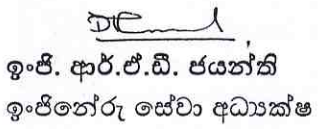 ඉංජි. ආර්.ඒ.ඩී. ජයන්ති
ඉංජිනේරු සේවා අධ්‍යක්ෂ